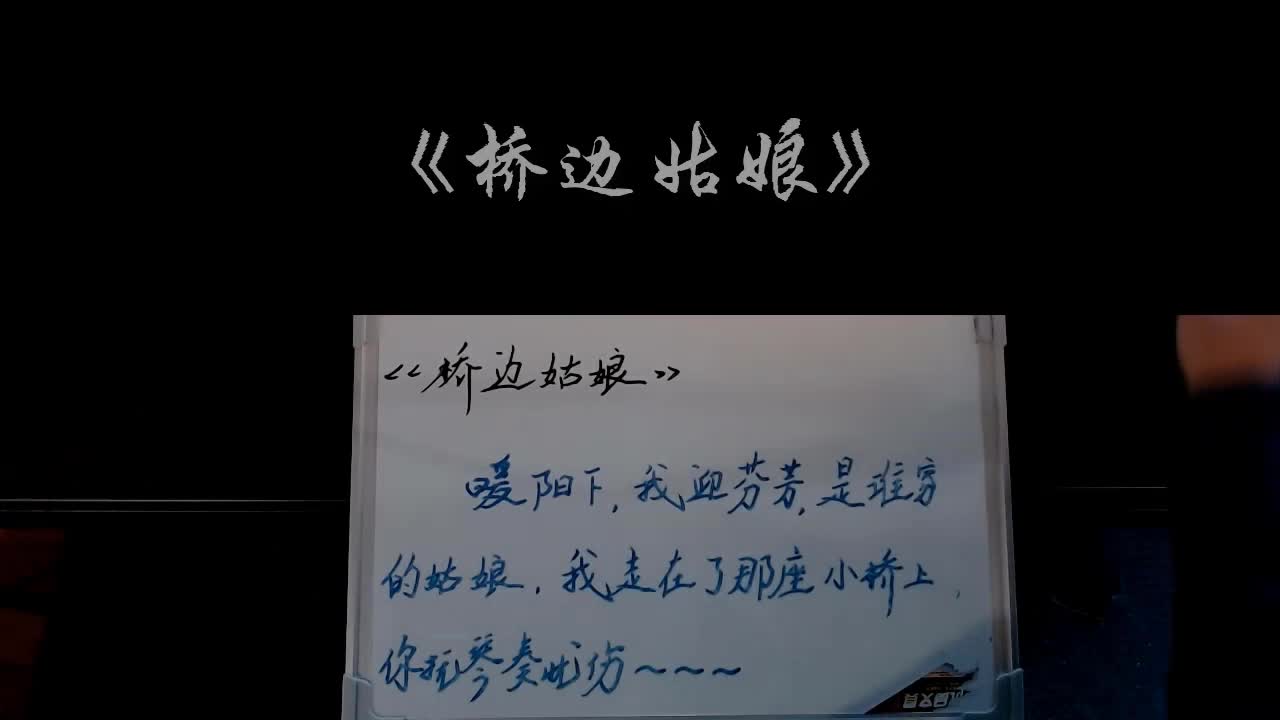 《桥边姑娘》
<<桥边姑娘>>
暖阳下,我迎芬芳,是谁家
的姑娘,我走在了那座小桥上,
你抚琴奏忧伤~~~